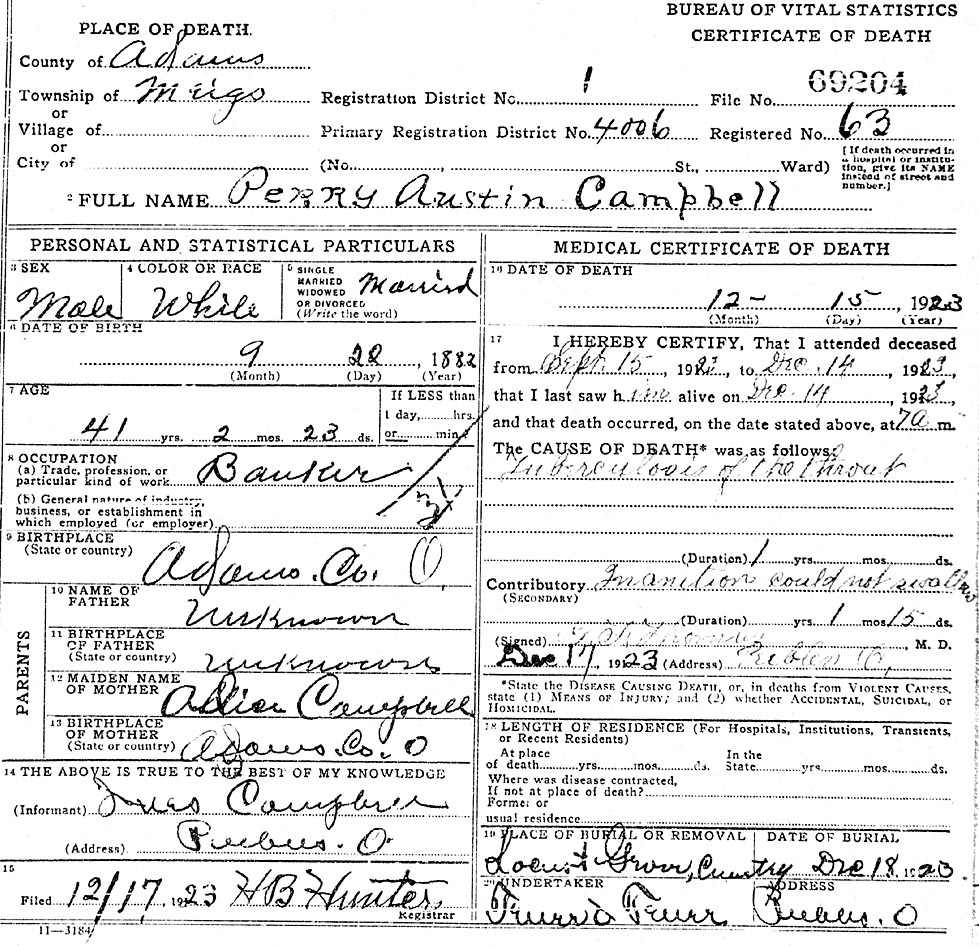 BUREAU OF VITAL STATISTICS
PLACE OF DEATH.
CERTIFICATE OF DEATH
County of Adams
Township of Meigs Registration District No. 1 File No. 69204
or
Village of Primary Registration District No. 4006 Registered No. 63
or
City of (No. , St., Ward)
[If death occurred in
a hospital or institu-
tion, give its NAME
instead of street and
number.]
2 FULL NAME Perry Austin Campbell
PERSONAL AND STATISTICAL PARTICULARS
3 SEX 4 COLOR OR RACE 5 SINGLE
MARRIED
WIDOWED
OR DIVORCED
(Write the word)
Male White Married
6 DATE OF BIRTH
9 22 1882
(Month) (Day) (Year)
7 AGE If LESS than
1 day, hrs.
or min.
41 yrs. 2 mos. 23 ds.
8 OCCUPATION
(a) Trade, profession, or
particular kind of work Banker
(b) General nature of industry,
business, or establishment in
which employed (or employer)
9 BIRTHPLACE
(State or country)
Adams. Co. O.
PARENTS
10 NAME OF
FATHER
Unknown
11 BIRTHPLACE
OF FATHER
(State or country)
Unknown
12 MAIDEN NAME
OF MOTHER
Campbell
13 BIRTHPLACE
OF MOTHER
(State or country)
Adams. Co. O
14 THE ABOVE IS TRUE TO THE BEST OF MY KNOWLEDGE
(Informant) Campbell
(Address) Peebles. O
15
Filed 12/17 1923 HB Hunter
Registrar
11—3184
MEDICAL CERTIFICATE OF DEATH
16 DATE OF DEATH
12 - 15 1923
(Month) (Day) (Year)
17 I HEREBY CERTIFY, That I attended deceased
from Sept. 15, 192 , to Dec. 14, 1923,
that I last saw him alive on Dec. 14, 1923,
and that death occurred, on the date stated above, at 7a m.
The CAUSE OF DEATH* was as follows:
Tuberculosis of the throat
(Duration) 1 yrs. mos. ds.
Contributory Inanition could not swallow
(SECONDARY)
(Duration) 1 15 ds.
(Signed) , M. D.
Dec 17, 1923 (Address) Peebles O.
*State the DISEASE CAUSING DEATH, or, in deaths from VIOLENT CAUSES,
state (1) MEANS OF INJURY; and (2) whether ACCIDENTAL, SUICIDAL, or
HOMICIDAL.
18 LENGTH OF RESIDENCE (For Hospitals, Institutions, Transients,
or Recent Residents)
At place In the
of death yrs. mos. ds. State yrs. mos. ds.
Where was disease contracted,
If not at place of death?
Former or
usual residence
19 PLACE OF BURIAL OR REMOVAL DATE OF BURIAL
Locust Grove, Dec 18, 1923
20 UNDERTAKER ADDRESS
Peebles. O